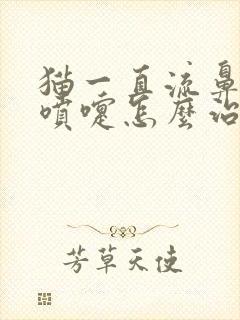 猫一直流鼻
喷嚏怎么治
芳草天使